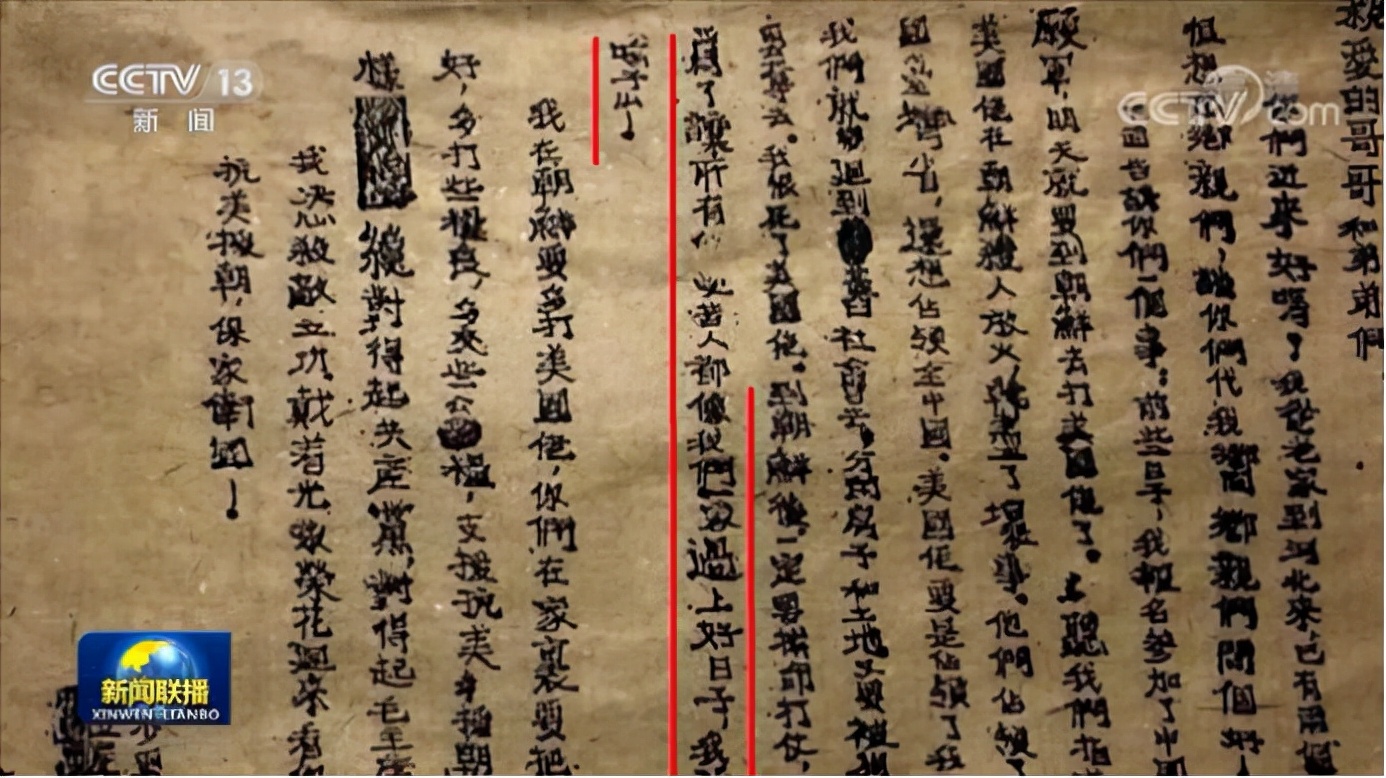 CCTV 13
新闻
CCTV com
愛的哥哥和弟弟們
們近來好嗎？我從老家到河北來已有兩個
但想 鄉親們，請你們代我 問鄉親們問個好
告訴你們一個事：前些日子，我報名參加了中國
願軍，明天就要到朝鮮去打美國佬了。上聽我們指
美國佬在朝鮮殺人放火，幹盡了壞事。他們佔領了
國台灣省，還想佔領全中國。美國佬要是佔領了我
我們就要迴到舊社會去，分的房子和土地又要被
去。我恨死了美國佬。到朝鮮後，一定要拼命打仗，
為了讓所有 受苦人都像我們一家過上好日子，我
出！
我在朝鮮要多打美國佬，你們在家裏要把
好，多打些糧食，多交些公糧，支援抗美 朝
樣 對得起共產黨，對得起毛主席
我決心殺敵立功，戴着光榮花迴來看你
抗美援朝，保家衛國！
新闻联播
XINWEN LIANBO